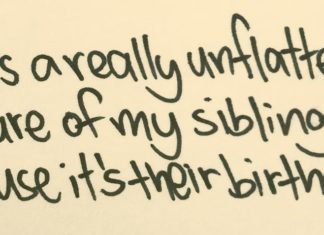 s a really unflatte
ure of my sibling
use it's their birth